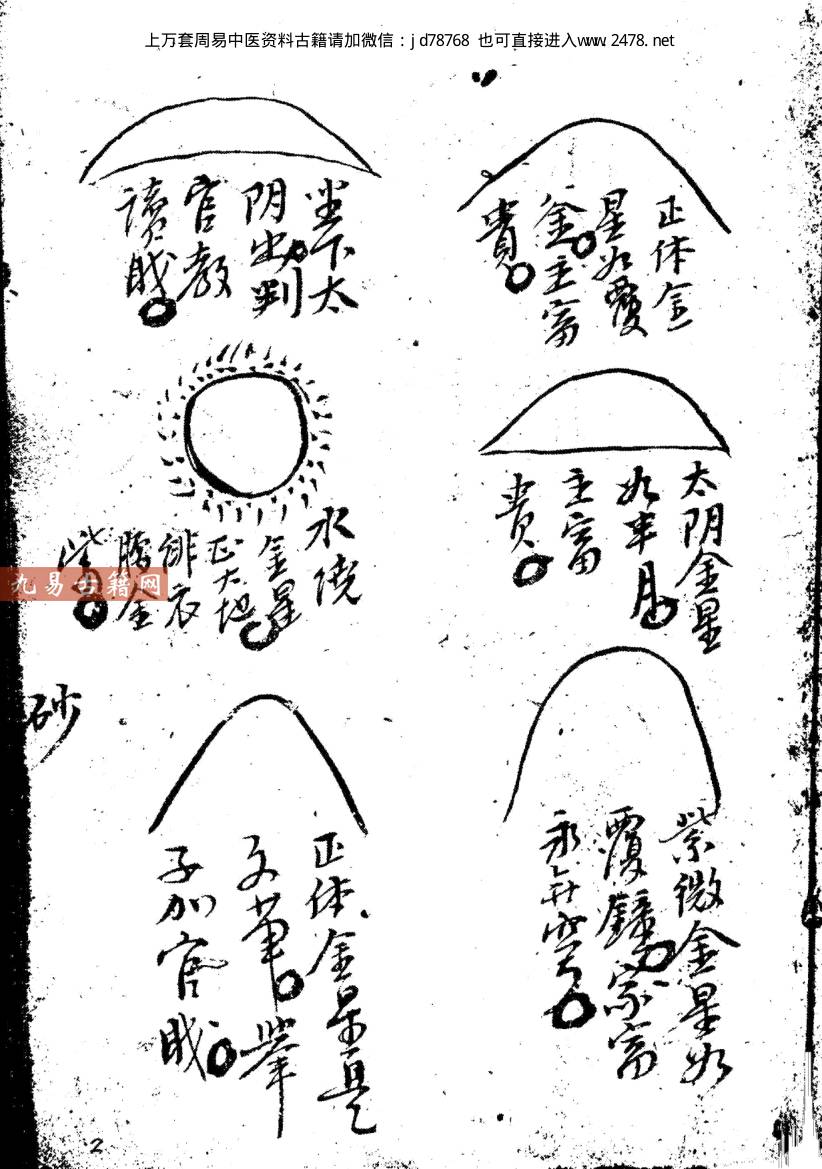 上万套周易中医资料古籍请加微信：jd78768 也可直接进入www.2478.net
正体金
星如覆
釜主富
貴
坐下太
阴出判
官教
讀
太阴金星
如半月
主富
貴
水繞
金星
正大地
緋衣
腰金
九易古籍网
砂
紫微金星如
覆鐘家富
永無
正体金星是
文筆舉
子加官
2